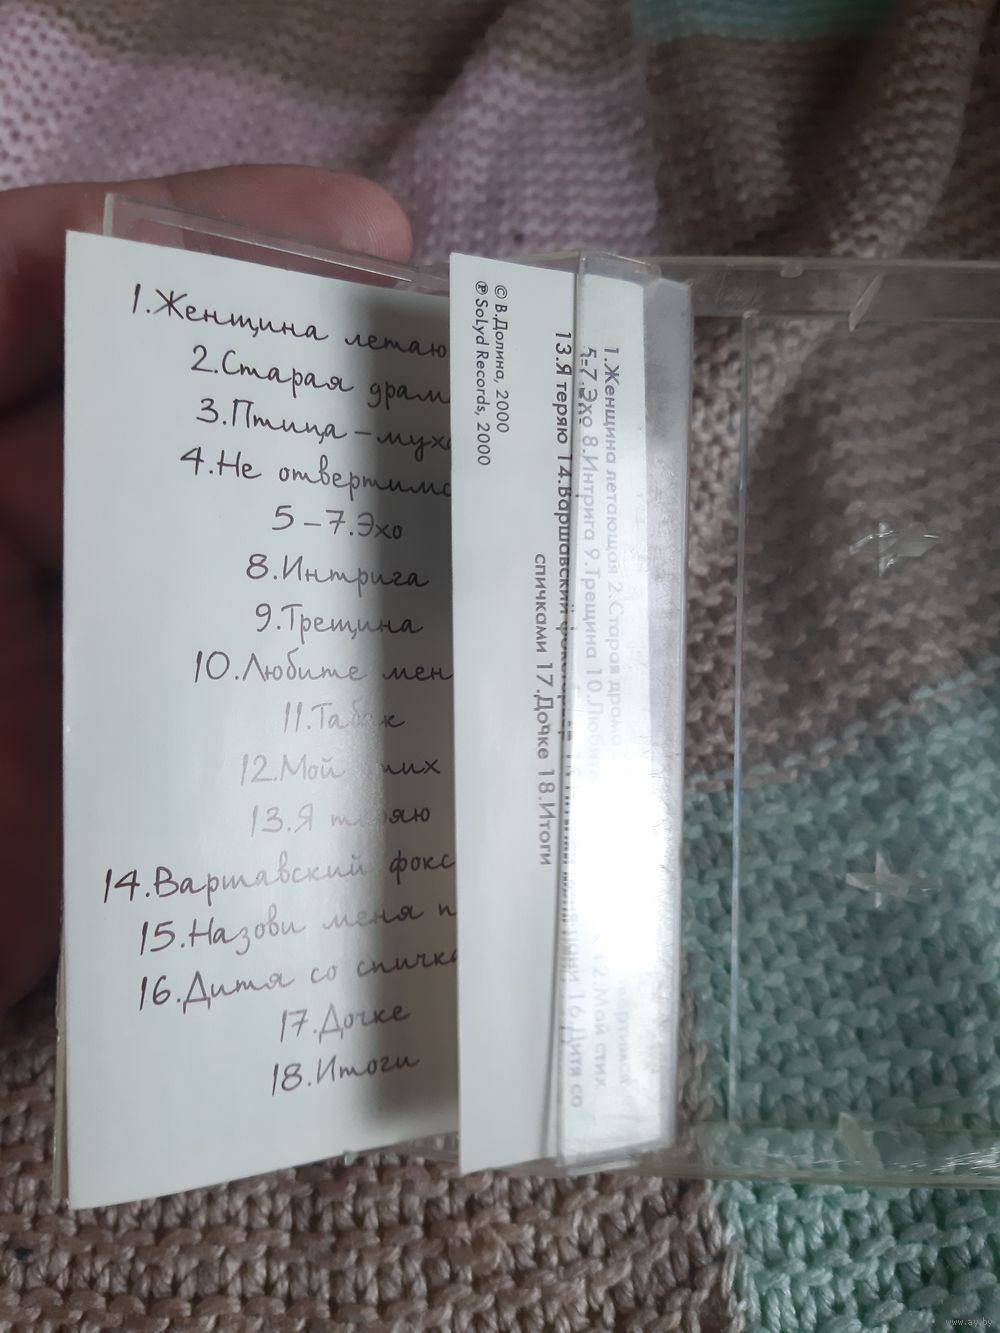 1.Женщина летаю
2.Старая драм
3.Птица-муха
4.Не отвертимс
5-7.Эхо
8.Интрига
9.Трещина
10.Любите мен
11.Табак
12.Мой стих
13.Я теряю
14.Варшавский фокс
15.Назови меня п
16.Дитя со спичка
17.Дочке
18.Итоги
© В.Долина, 2000
℗ SoLyd Records, 2000
1.Женщина летающая 2.Старая драма
5-7.Эхо 8.Интрига 9.Трещина 10.Любите 12.Мой стих
13.Я теряю 14.Варшавский 16.Дитя со
спичками 17.Дочке 18.Итоги
www.ay.by